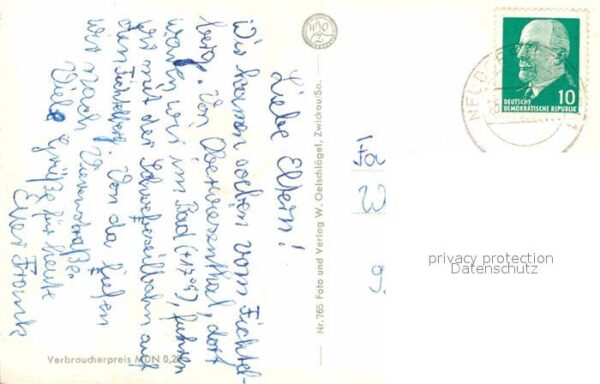 Liebe Eltern!
Wir kamen soeben vom Fichtel-
berg. Von Oberwiesenthal, dort
waren wir im Bad (+17°), fuhren
wir mit der Schwebeseilbahn auf
den Fichtelberg. Von da liefen
wir nach
Viele Grüße für heute
Euer Frank
Verbraucherpreis MDN 0,20
Nr. 765 Foto und Verlag W. Oelschlägel, Zwickau/Sa.
10
DEUTSCHE
DEMOKRATISCHE REPUBLIK
privacy protection
Datenschutz